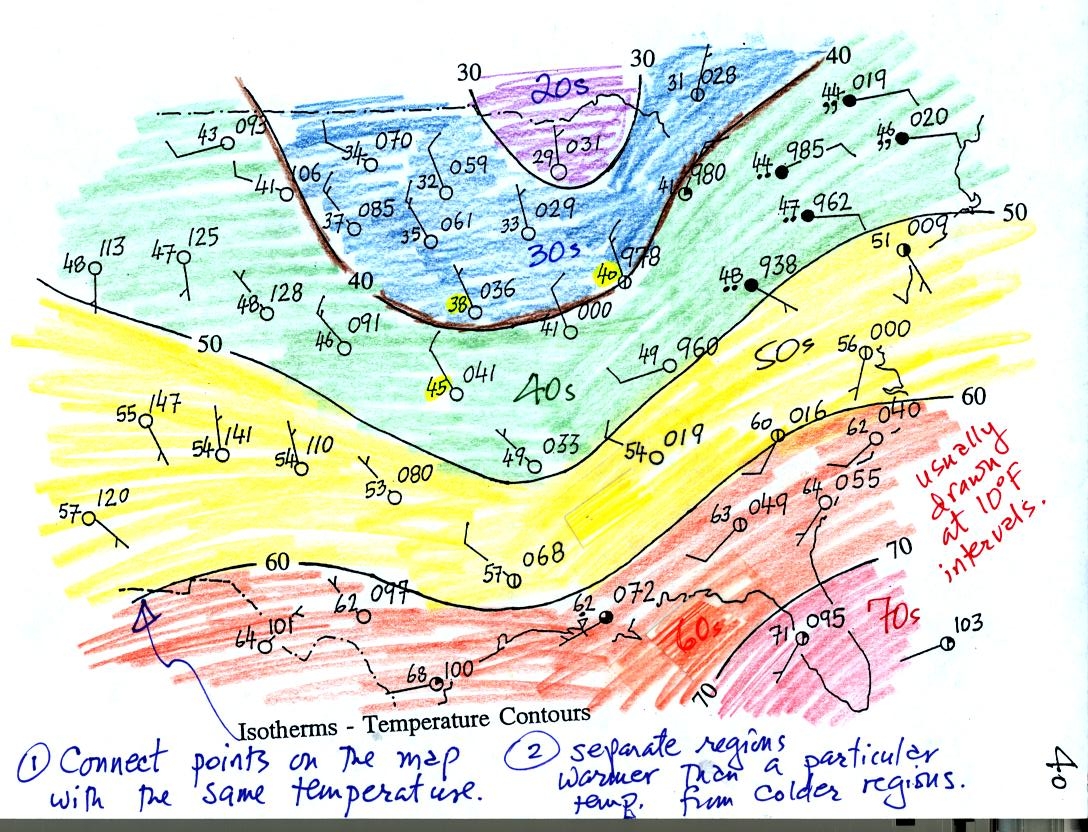 30 30 40
20s
31 028
44 019
43 093
34 070
46 020
29 031
32 059
44 985
41 106
41 980
37 085
35 061
33 029
47 962
50
30s
51 009
48 113
47 125
40 978
40
48 938
48 128
38 036
41 000
46 091
50
49 960
50s
56 000
45 041
40s
60
55 147
54 141
54 110
60 016
62 040
49 033
54 019
usually
drawn
at 10°F
intervals.
53 080
64 055
57 120
63 049
70
57 068
60
62 097
62 072
70s
60s
64 101
71 095
103
68 100
70
Isotherms - Temperature Contours
① Connect points on the map
with the same temperature.
② separate regions
warmer than a particular
temp. from colder regions.
40